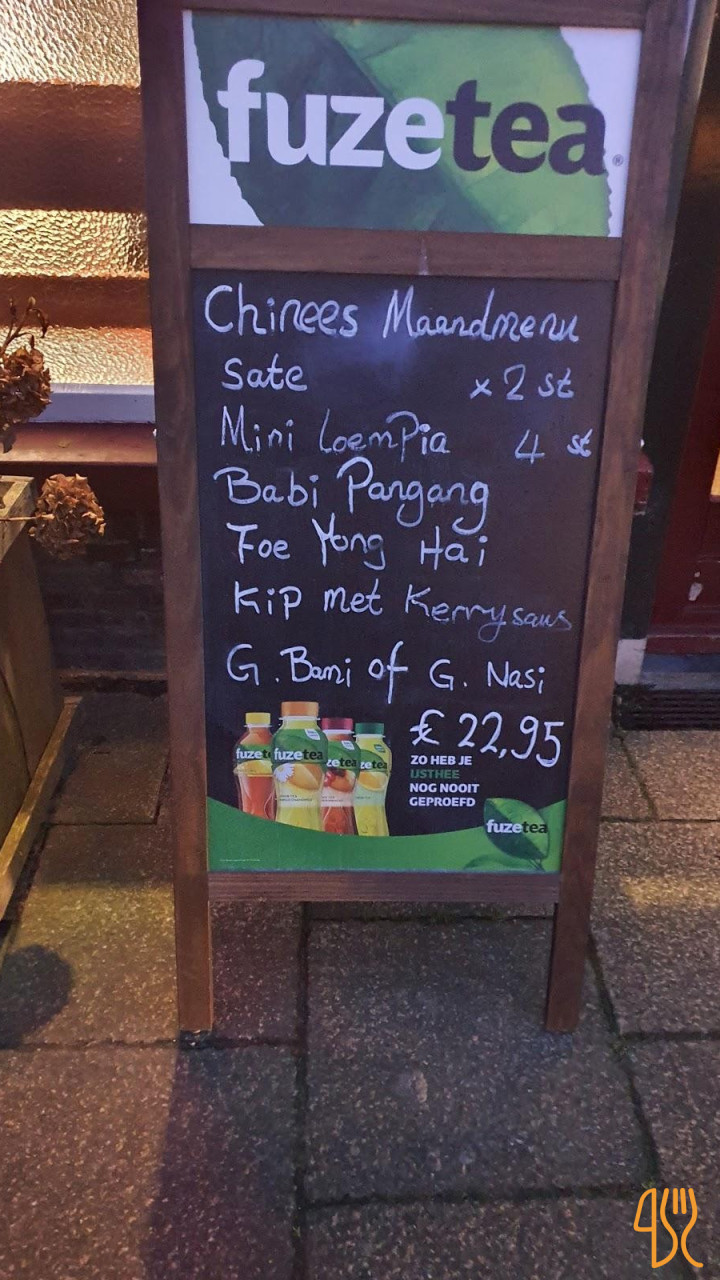 fuzetea®
Chinees Maandmenu
Sate x 2 st
Mini LoemPia 4 st
Babi Pangang
Foe Yong Hai
Kip met Kerrysaus
G. Bami of G. Nasi
€ 22,95
fuzetea
fuzetea
fuzetea
fuzetea
ZO HEB JE
IJSTHEE
NOG NOOIT
GEPROEFD
fuzetea